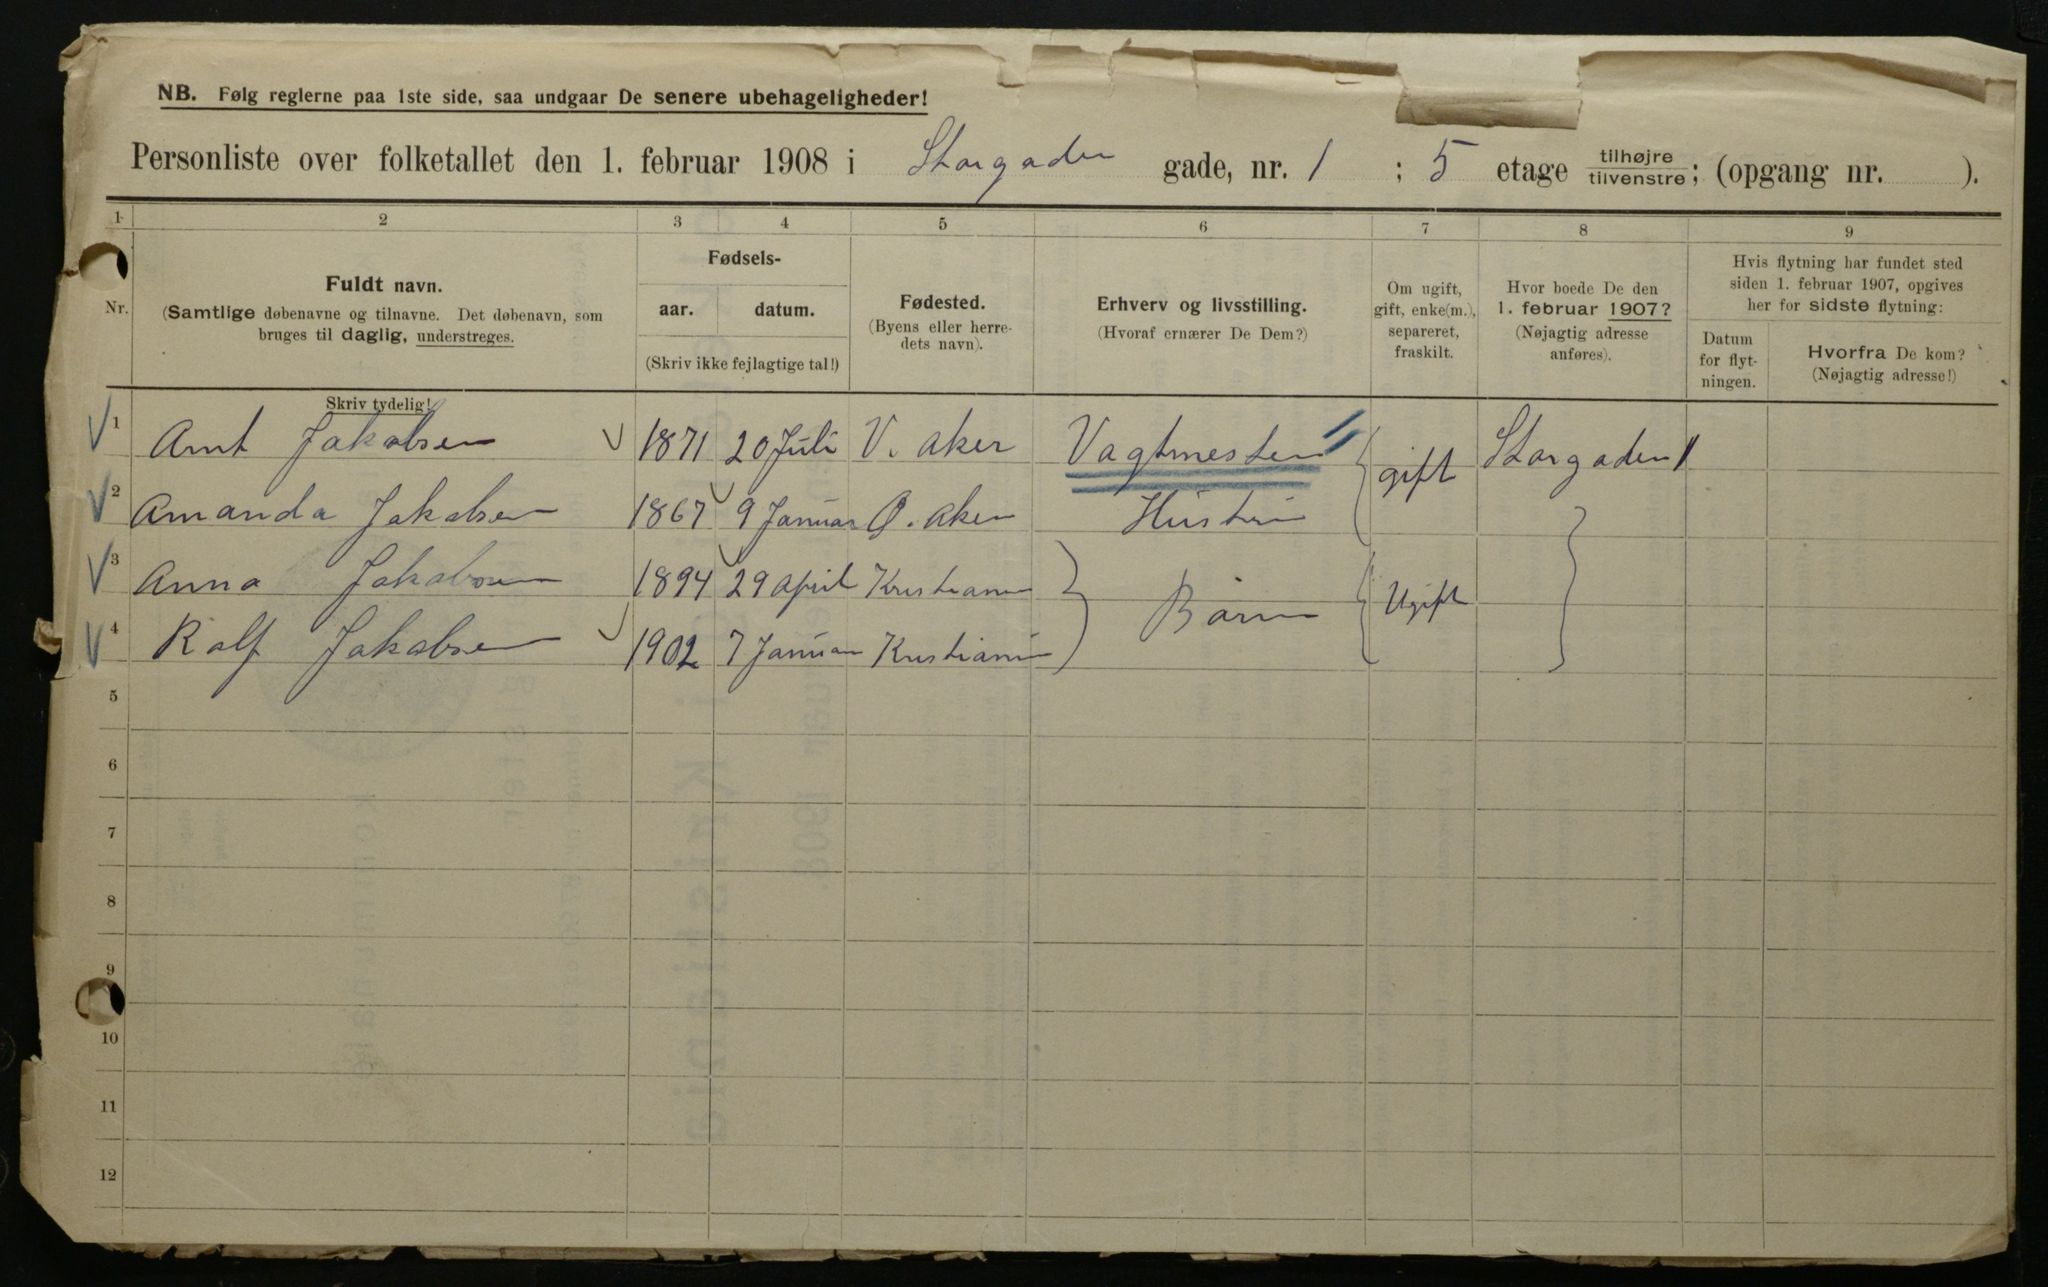 NB. Følg reglerne paa 1ste side, saa undgaar De senere ubehageligheder!
Personliste over folketallet den 1. februar 1908 i Storgaden gade, nr. 1 ; 5 etage tilhøjre/tilvenstre; (opgang nr. ).
1 2 3 4 5 6 7 8 9
Nr.
Fuldt navn.
(Samtlige døbenavne og tilnavne. Det døbenavn, som
bruges til daglig, understreges.
Skriv tydelig!
Fødsels-
aar. datum.
(Skriv ikke fejlagtige tal!)
Fødested.
(Byens eller herre-
dets navn).
Erhverv og livsstilling.
(Hvoraf ernærer De Dem?)
Om ugift,
gift, enke(m.),
separeret,
fraskilt.
Hvor boede De den
1. februar 1907?
(Nøjagtig adresse
anføres).
Hvis flytning har fundet sted
siden 1. februar 1907, opgives
her for sidste flytning:
Datum
for flyt-
ningen.
Hvorfra De kom?
(Nøjagtig adresse!)
1 Arnt Jakobsen 1871 20 Juli V. Aker Vagtmester gift Storgaden 1
2 Amanda Jakobsen 1867 9 Januar Ø. Aker Hustru
3 Anna Jakobsen 1894 29 April Kristiania Børn Ugift
4 Rolf Jakobsen 1902 7 Januar Kristiania
5
6
7
8
9
10
11
12